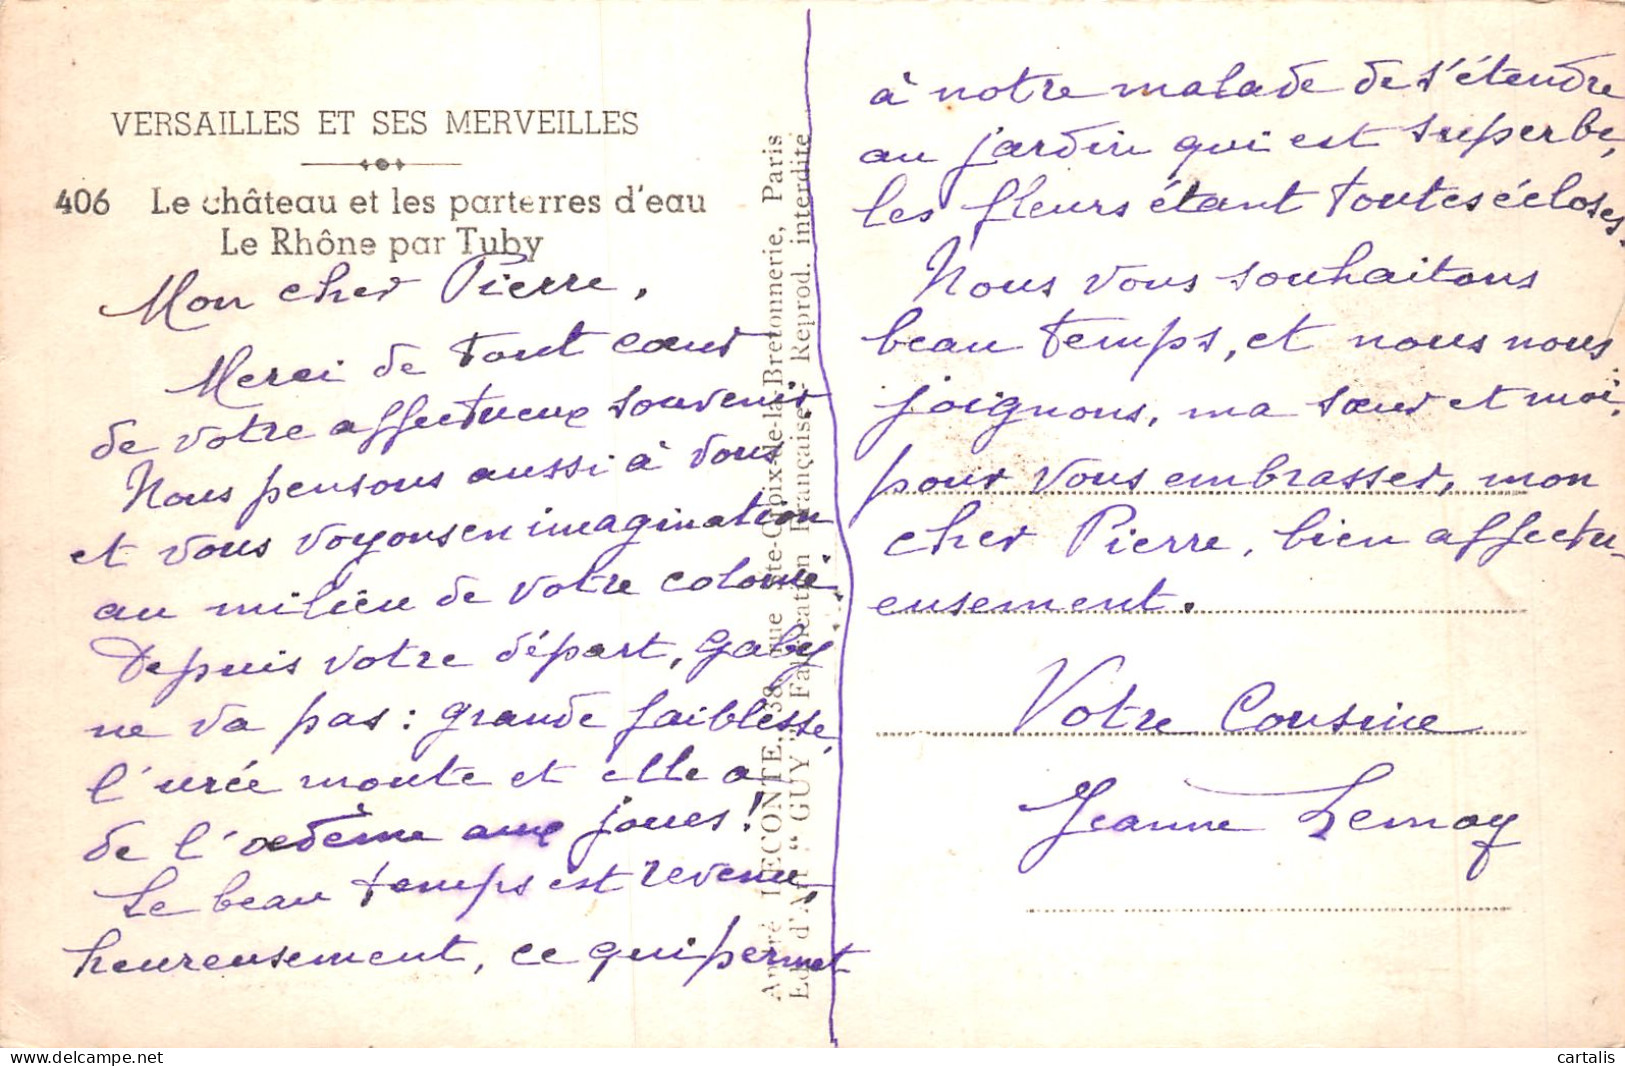 VERSAILLES ET SES MERVEILLES
406 Le château et les parterres d'eau
Le Rhône par Tuby
Mon cher Pierre,
Merci de tout cœur
de votre affectueux souvenir
Nous pensons aussi à vous
et vous voyons en imagination
au milieu de votre colonie.
Depuis votre départ, Gaby
ne va pas : grande faiblesse,
l'urée monte et elle a
de l'œdème aux joues !
Le beau temps est revenu,
heureusement, ce qui permet
à notre malade de s'étendre
au jardin qui est superbe,
les fleurs étant toutes écloses.
Nous vous souhaitons
beau temps, et nous nous
joignons, ma sœur et moi,
pour vous embrasser, mon
cher Pierre, bien affectu-
eusement.
Votre Cousine
Jeanne Lemoy
André LECONTE, 38, rue Ste-Croix-de-la-Bretonnerie, Paris
Ed. d'Art "GUY" Fabrication Française - Reprod. interdite
cartalis